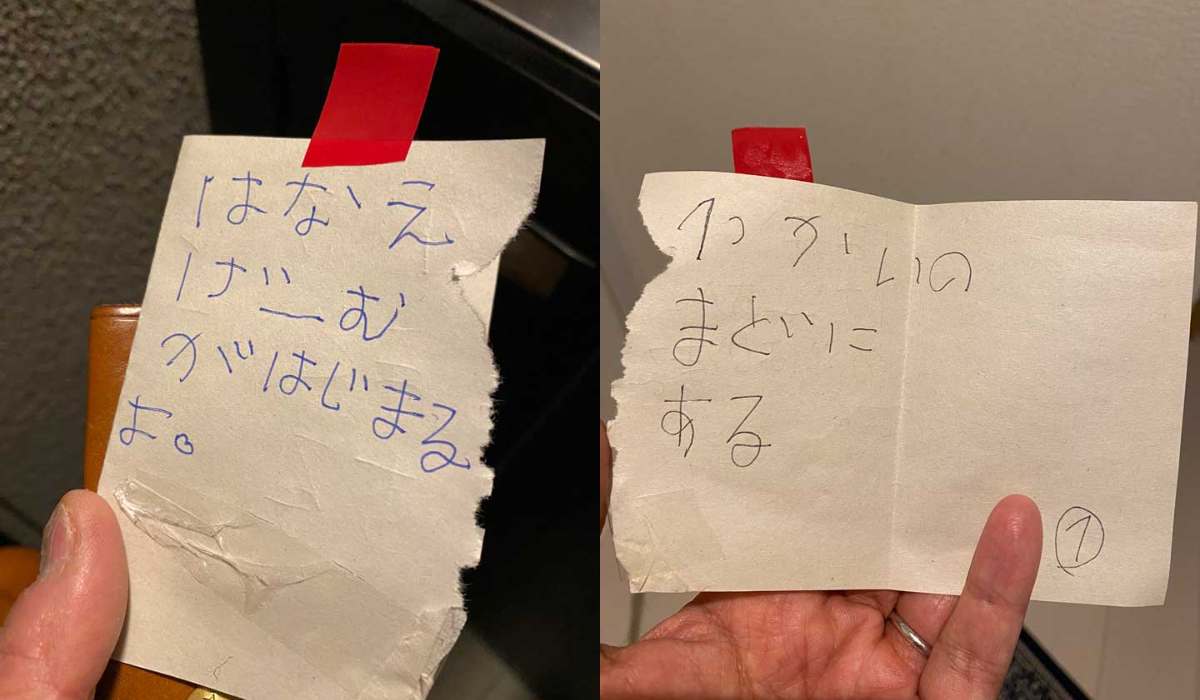 はなえ
げーむ
がはじまる
よ。
1っかいの
まどに
ある
①